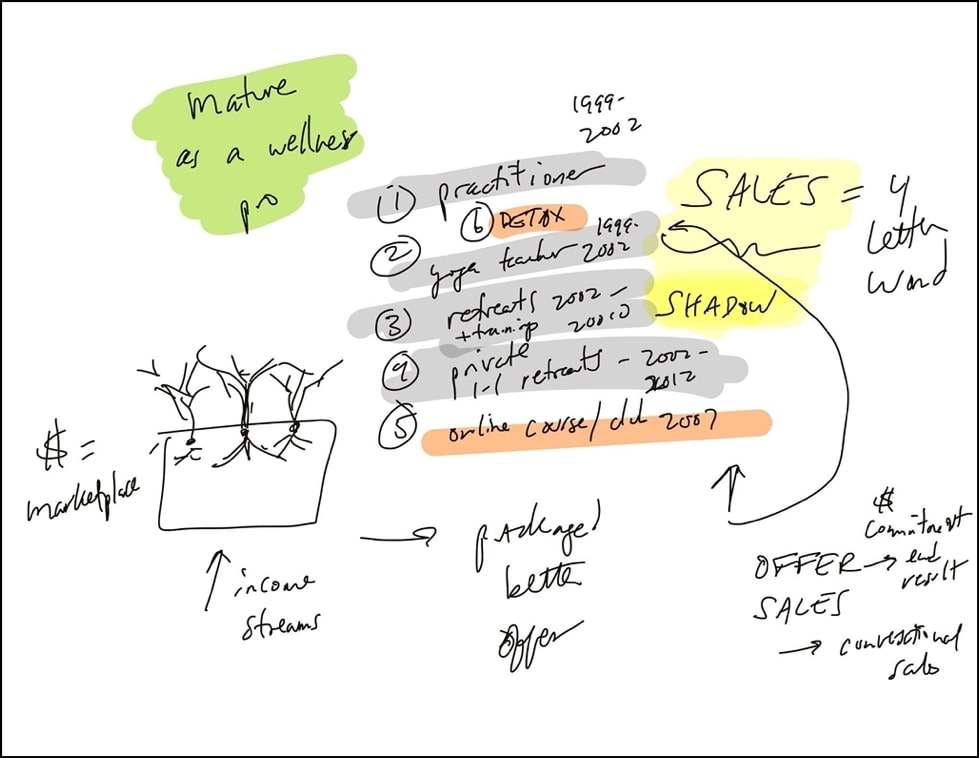 mature
as a wellness
pro
1999-
2002
① practitioner
⑥ DETOX
② yoga teacher 1999-
2002
③ retreats 2002-
+ training
④ private
1-1 retreats - 2002-
2012
⑤ online course/ 2007
SALES = 4
letter
word
SHADOW
$ =
marketplace
↑ income
streams
→ packaged
better
offer
$
commitment
OFFER → end
result
SALES
→ conversational
sales